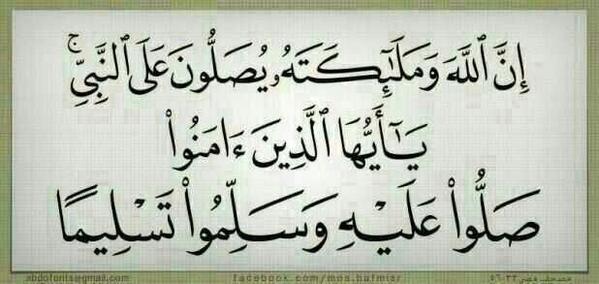 إِنَّ ٱللَّهَ وَمَلَٰٓئِكَتَهُۥ يُصَلُّونَ عَلَى ٱلنَّبِيِّۚ
يَٰٓأَيُّهَا ٱلَّذِينَ ءَامَنُوا۟
صَلُّوا۟ عَلَيْهِ وَسَلِّمُوا۟ تَسْلِيمًا
xbdofonts@gmail.com facebook.com/mns.hafmisr